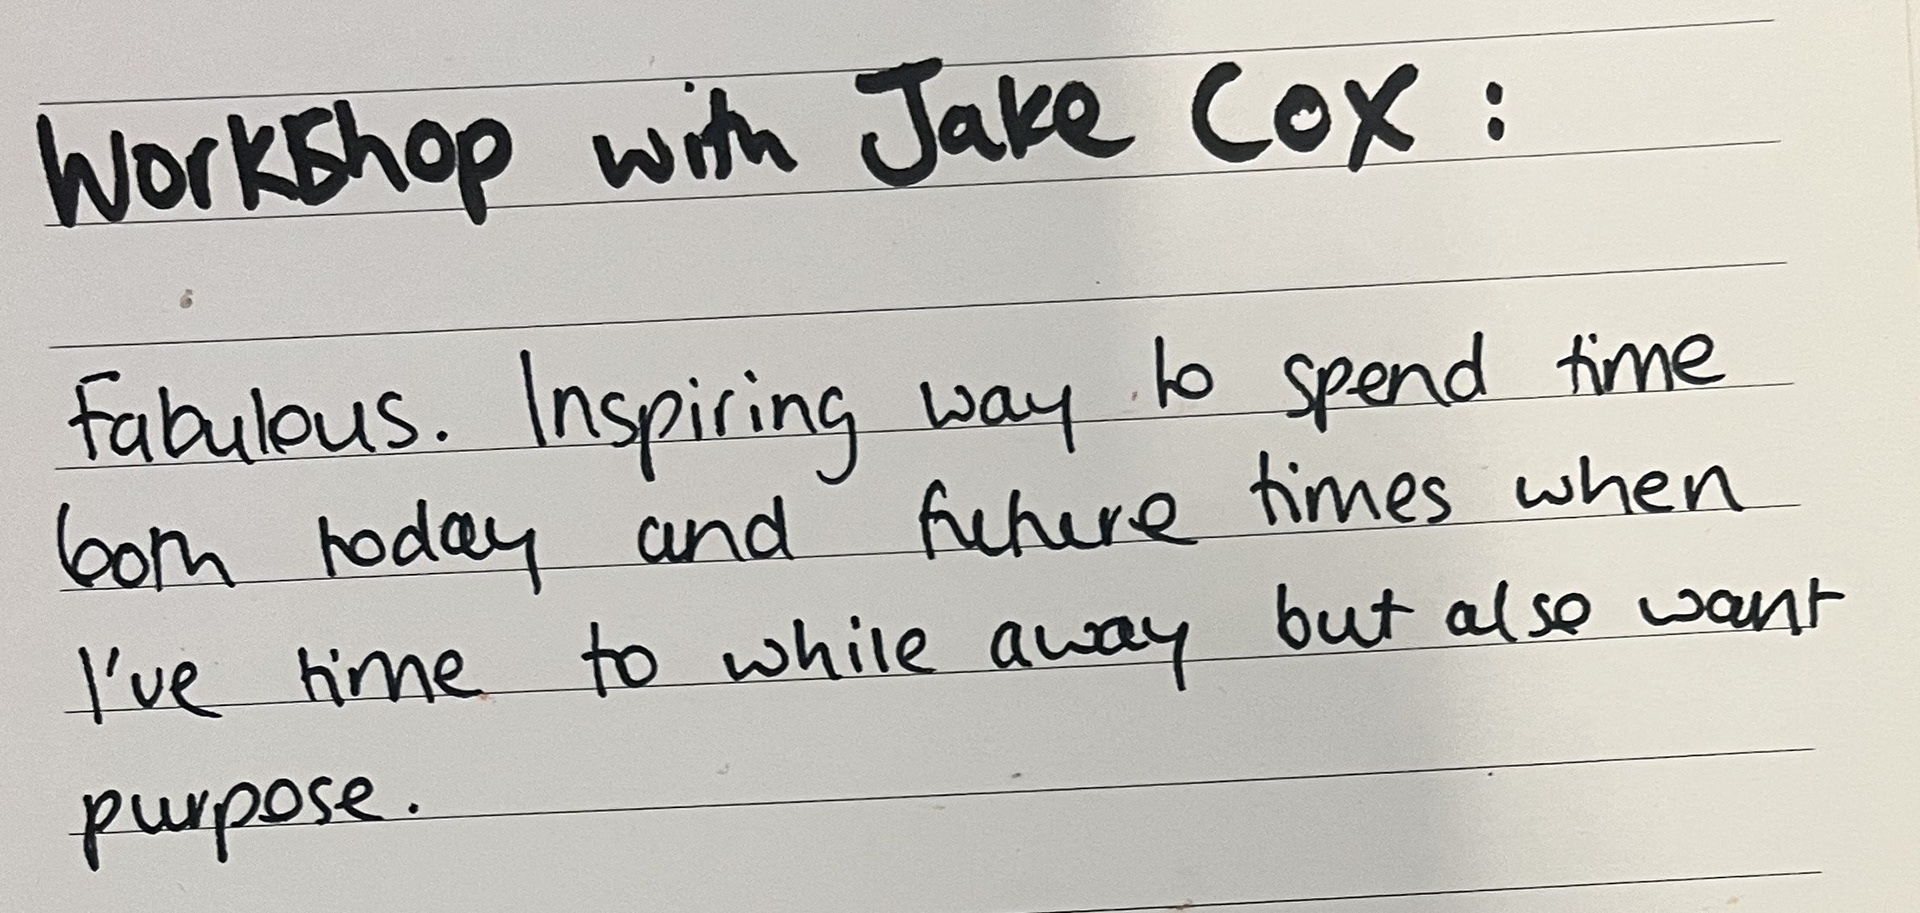 Workshop with Jake Cox :
Fabulous. Inspiring way to spend time
both today and future times when
I've time to while away but also want
purpose.